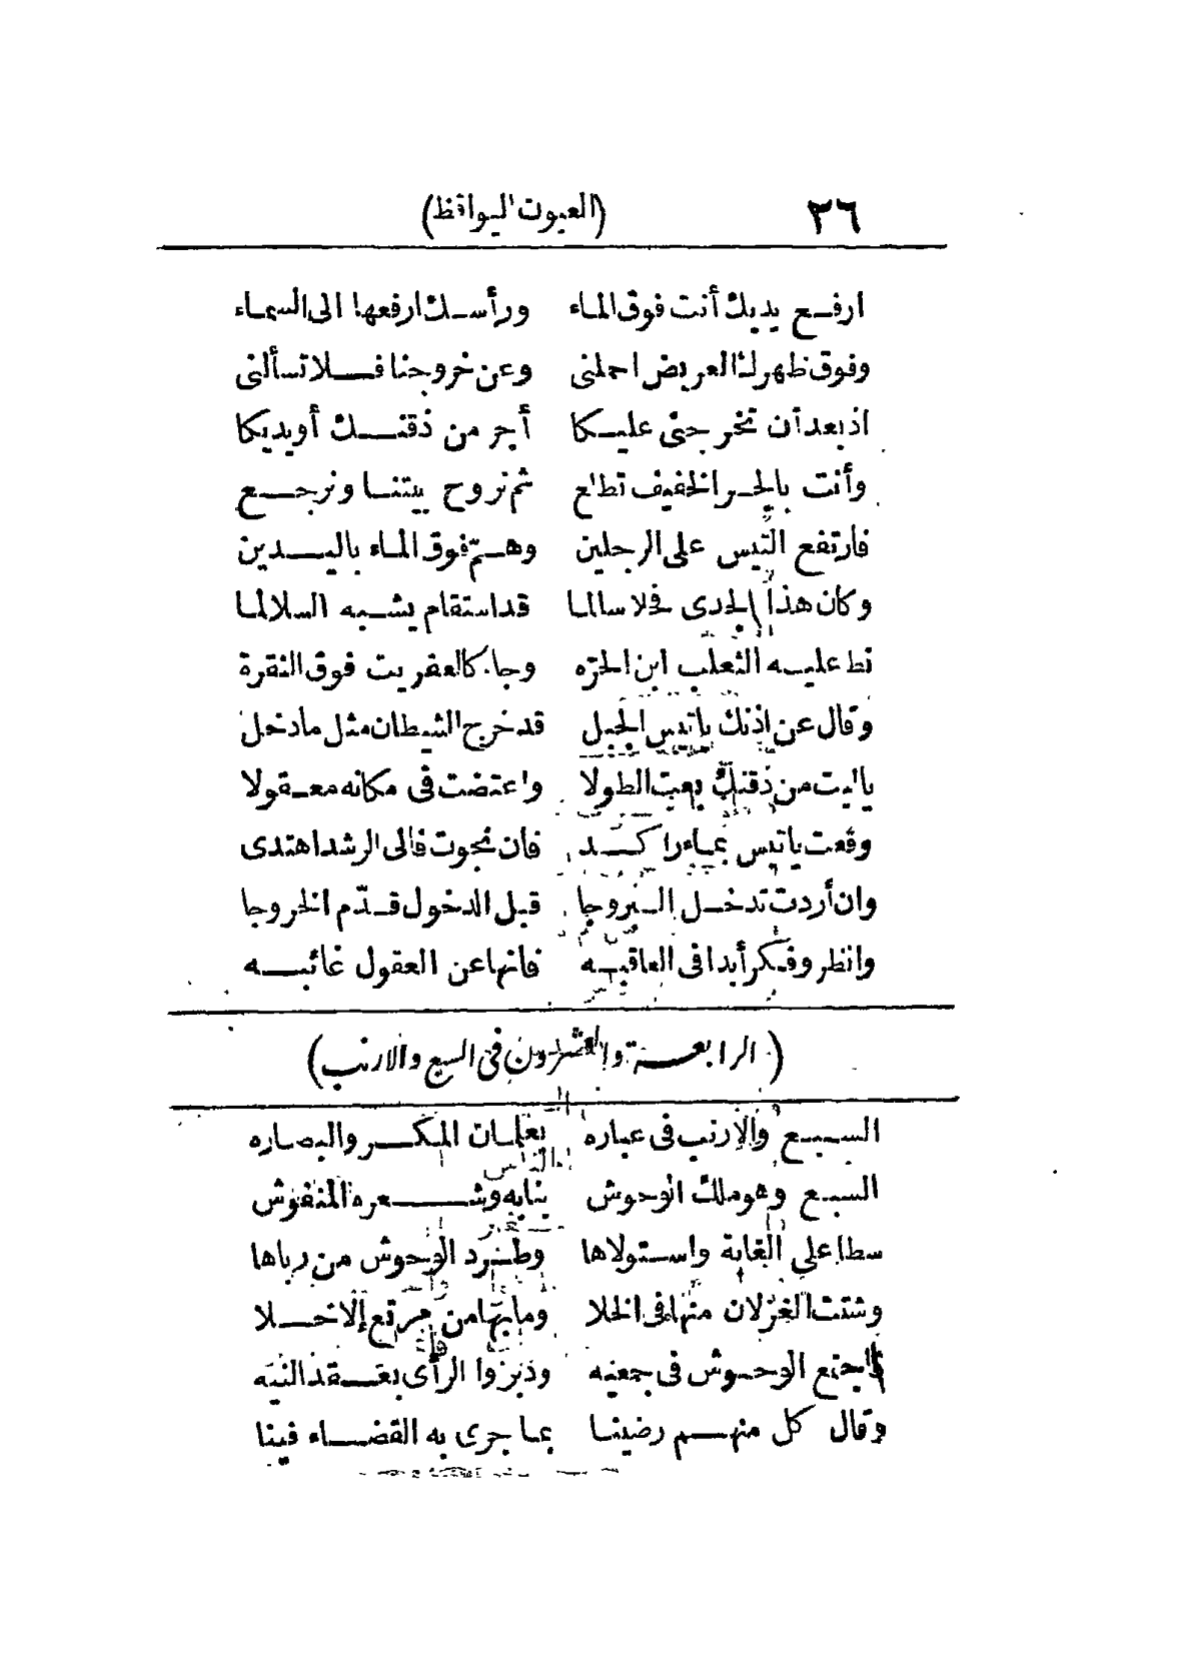 ٣٦ (العيون اليواقظ)
ارفع يديك أنت فوق الماء ورأسك ارفعها الى السماء
وفوق ظهرك العريض احملنى وعن خروجنا فلا تسألنى
اذ بعد أن تخرجنى عليكا أجر من ذقنك أو يديكا
وأنت بالجر الخفيف تطلع ثم نروح بيتنا ونرجع
فارتفع التيس على الرجلين وهمّ فوق الماء باليدين
وكان هذا الجدى فخلا سالما قد استقام يشبه السلالما
نط عليه الثعلب ابن الحرّه وجاء كالعفريت فوق النقرة
وقال عن اذنك ياتيس الجبل قد خرج الشيطان مثل مادخل
ياليت من ذقنك بعت الطولا واعتضت فى مكانه معقولا
وقعت ياتيس بماء راكد فان نجوت فالى الرشد اهتدى
وان أردت تدخل البروجا قبل الدخول قدّم الخروجا
وانظر وفكر أبدا فى العاقبه فانها عن العقول غائبه
(الرابعة والعشرون فى السبع والارنب)
السبع والارنب فى عباره يعلمان المكر والبصاره
السبع وهو ملك الوحوش بنابه وشعره المنفوش
سطا على الغابة واستولاها وطرد الوحوش من رباها
وشتت الغزلان منها فى الخلا وما بها من مرتع إلا خلا
فاجتمع الوحوش فى جمعيه ودبروا الرأى بعقد النيه
وقال كل منهم رضينا بما جرى به القضاء فينا